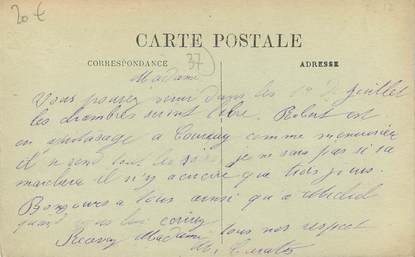 20 €
CARTE POSTALE
CORRESPONDANCE
ADRESSE
37
Madame
Vous pouvez venir dans les Juillet
les chambres seront libre. Robert est
en a comme menuisier
il rend tout les soirs je ne sais pas si sa
marchera il n'y a encore que trois jours.
Bonjours a tous ainsi qu'a
quand vous lui
Recevez Madame tous nos respect